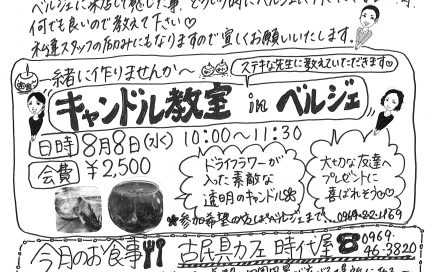 何でも良いので教えて下さい♡
私達スタッフの励みにもなりますので宜しくお願いいたします。
一緒に作りませんか〜
ステキな先生に教えていただきます♡
キャンドル教室 in ベルジェ
日時 8月8日(水) 10:00〜11:30
会費 ¥2,500
ドライフラワーが
入った素敵な
透明のキャンドル
大切な友達へ
プレゼントに
喜ばれそう♡
※参加希望の方はベルジェまで 0969-22-4169
今月のお食事 古民具カフェ 時代屋 ☎0969-
96-3820